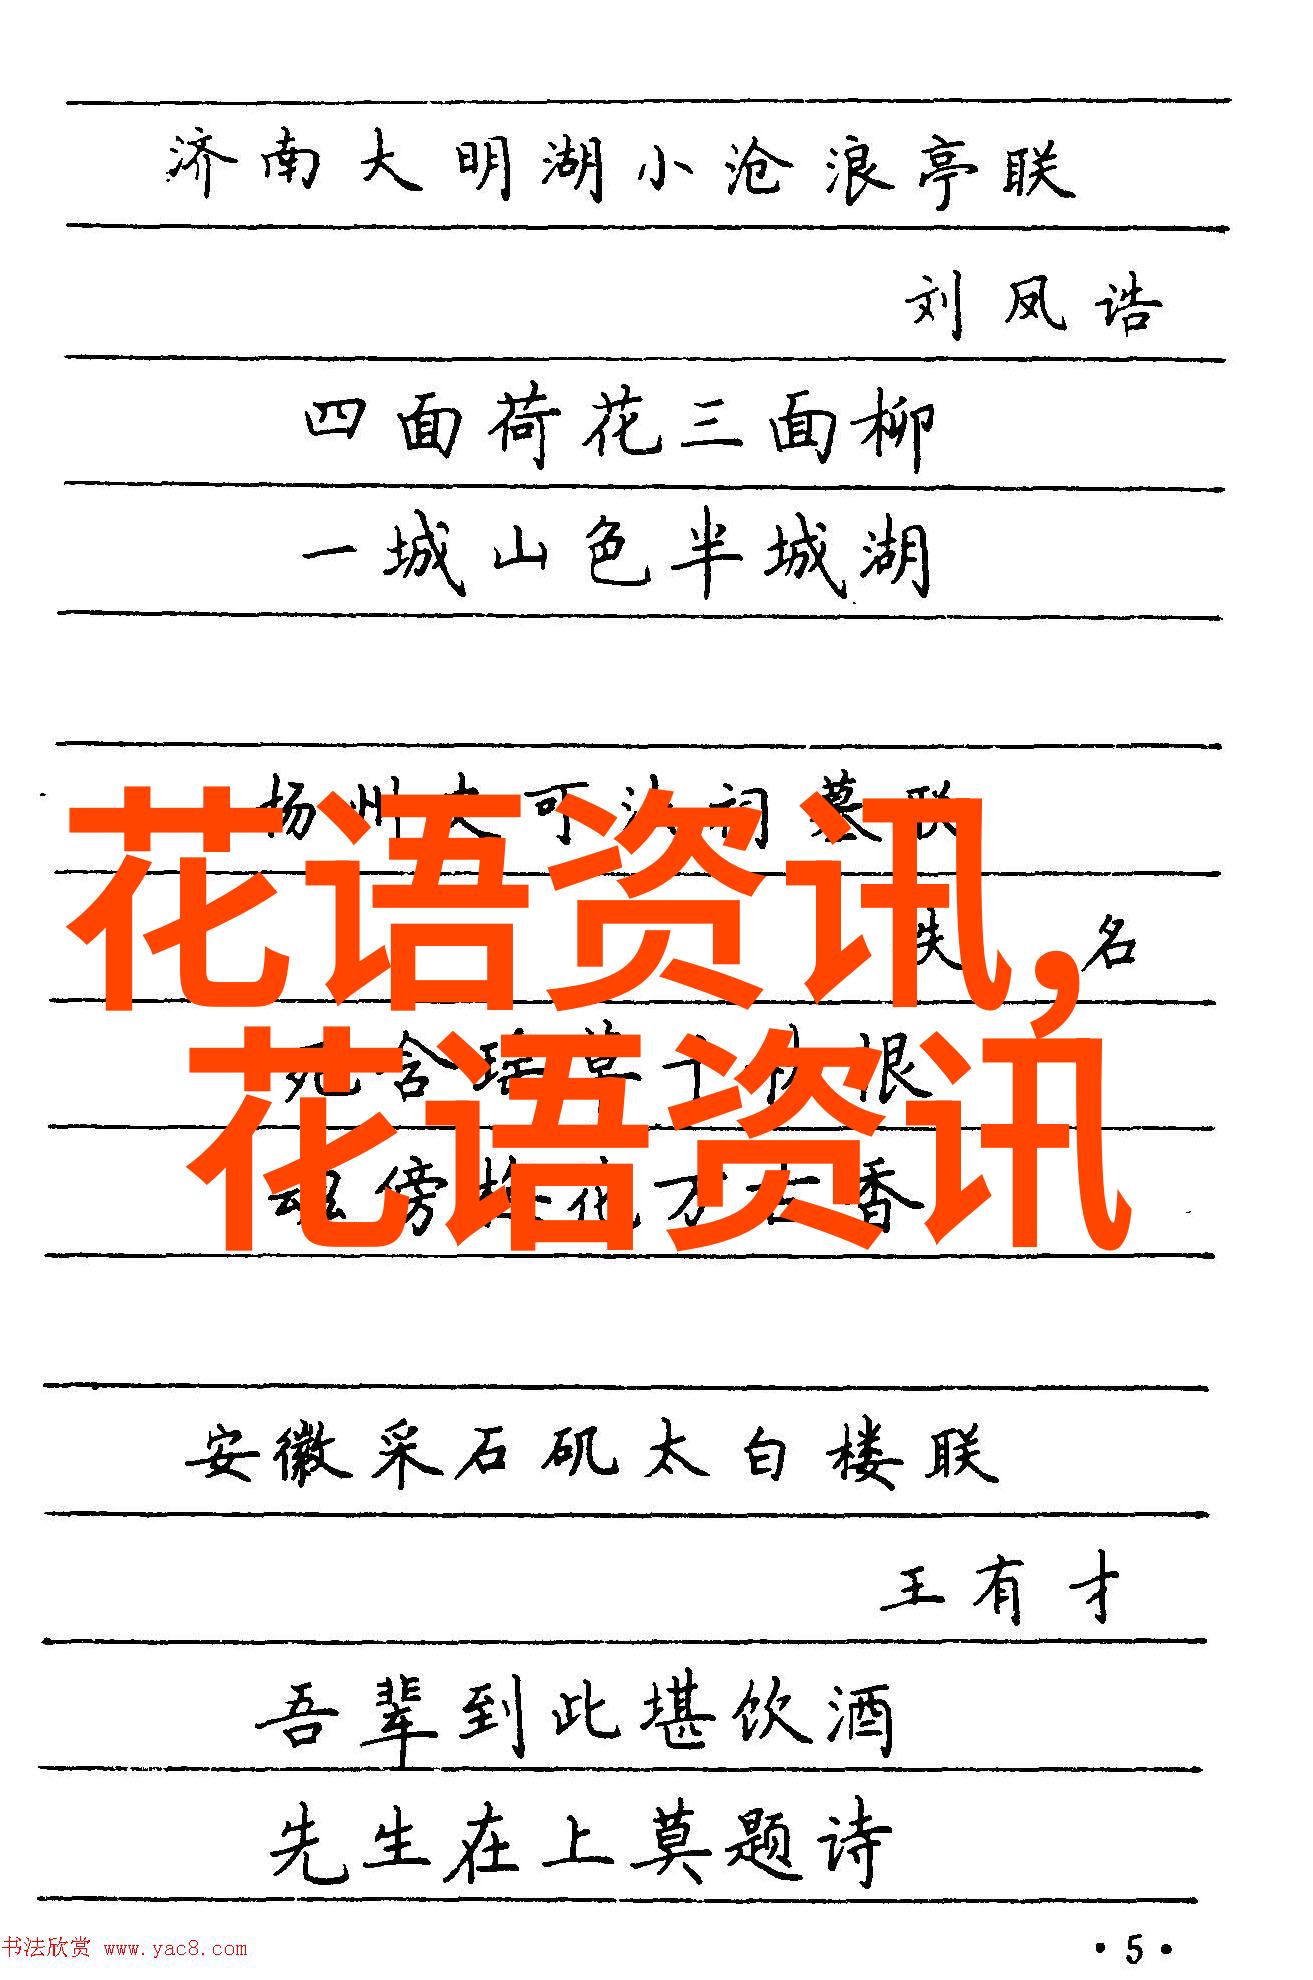 济南大明湖小沧浪亭联
刘凤诰
四面荷花三面柳
一城山色半城湖
扬州史可法祠墓联
名
花语资讯,
死含瑶草千秋恨
花语资讯
魂傍梅花万古香
安徽采石矶太白楼联
王有才
吾辈到此堪饮酒
先生在上莫题诗
书法欣赏 www.yac8.com
·5·